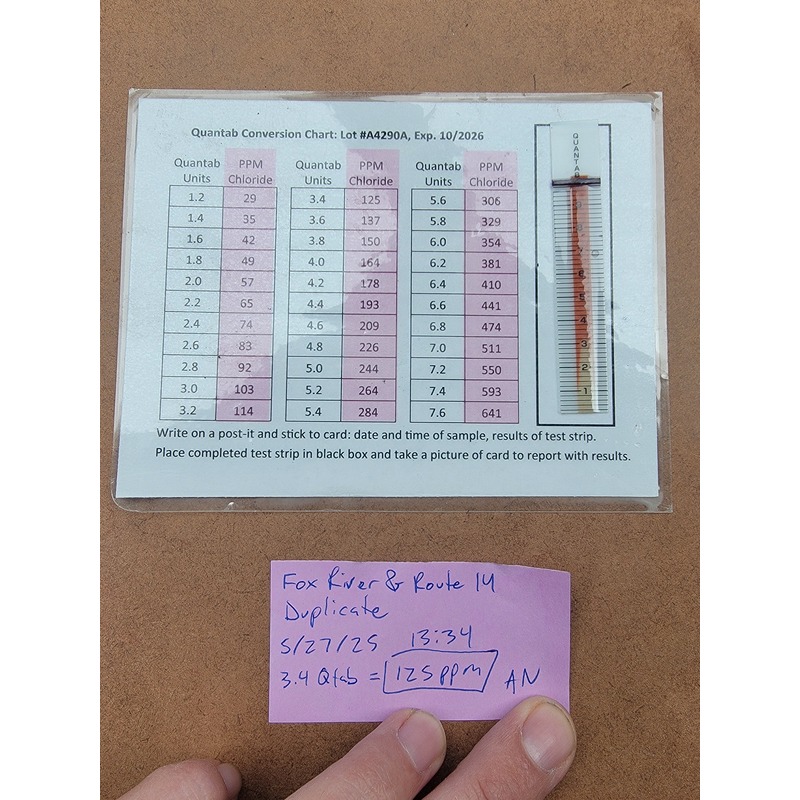 Quantab Conversion Chart: Lot #A4290A, Exp. 10/2026
Quantab Units PPM Chloride Quantab Units PPM Chloride Quantab Units PPM Chloride
1.2 29 3.4 125 5.6 306
1.4 35 3.6 137 5.8 329
1.6 42 3.8 150 6.0 354
1.8 49 4.0 164 6.2 381
2.0 57 4.2 178 6.4 410
2.2 65 4.4 193 6.6 441
2.4 74 4.6 209 6.8 474
2.6 83 4.8 226 7.0 511
2.8 92 5.0 244 7.2 550
3.0 103 5.2 264 7.4 593
3.2 114 5.4 284 7.6 641
QUANTAB
6
5
4
3
2
1
Write on a post-it and stick to card: date and time of sample, results of test strip.
Place completed test strip in black box and take a picture of card to report with results.
Fox River & Route 14
Duplicate
5/27/25 13:34
3.4 Qtab = 125 ppm AN